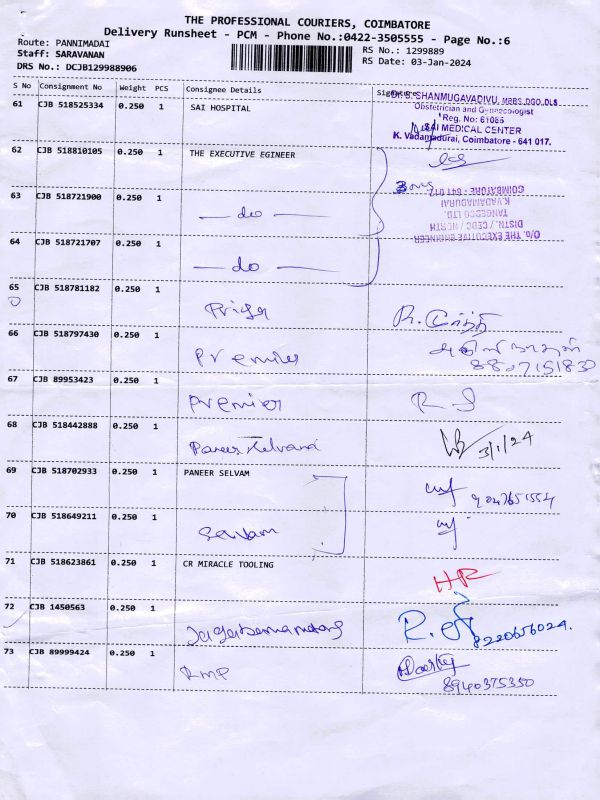 THE PROFESSIONAL COURIERS, COIMBATORE
Delivery Runsheet - PCM - Phone No.:0422-3505555 - Page No.:6
Route: PANNIMADAI
RS No.: 1299889
Staff: SARAVANAN
RS Date: 03-Jan-2024
DRS No.: DCJB129988906
S No Consignment No Weight PCS Consignee Details Signature
61 CJB 518525334 0.250 1 SAI HOSPITAL
Dr. S. SHANMUGAVADIVU, MBBS.DGO.DLS
Obstetrician and Gynecologist
Reg. No: 61085
MEDICAL CENTER
K. Vadamadurai, Coimbatore - 641 017.
62 CJB 518810105 0.250 1 THE EXECUTIVE EGINEER
O/o. THE EXECUTIVE ENGINEER
DISTN. / CEDC / NORTH
TANGEDCO LTD.
K.VADAMADURAI
COIMBATORE - 641 017
63 CJB 518721900 0.250 1 — do —
64 CJB 518721707 0.250 1 — do —
65 CJB 518781182 0.250 1 Priya
66 CJB 518797430 0.250 1 Premier
8807151830
67 CJB 89953423 0.250 1 Premier
68 CJB 518442888 0.250 1 Paneer Selvam
3/1/24
69 CJB 518702933 0.250 1 PANEER SELVAM
9047651554
70 CJB 518649211 0.250 1 Selvam
71 CJB 518623861 0.250 1 CR MIRACLE TOOLING
HR
72 CJB 1450563 0.250 1
8220656024.
73 CJB 89999424 0.250 1 RMP
8940375350